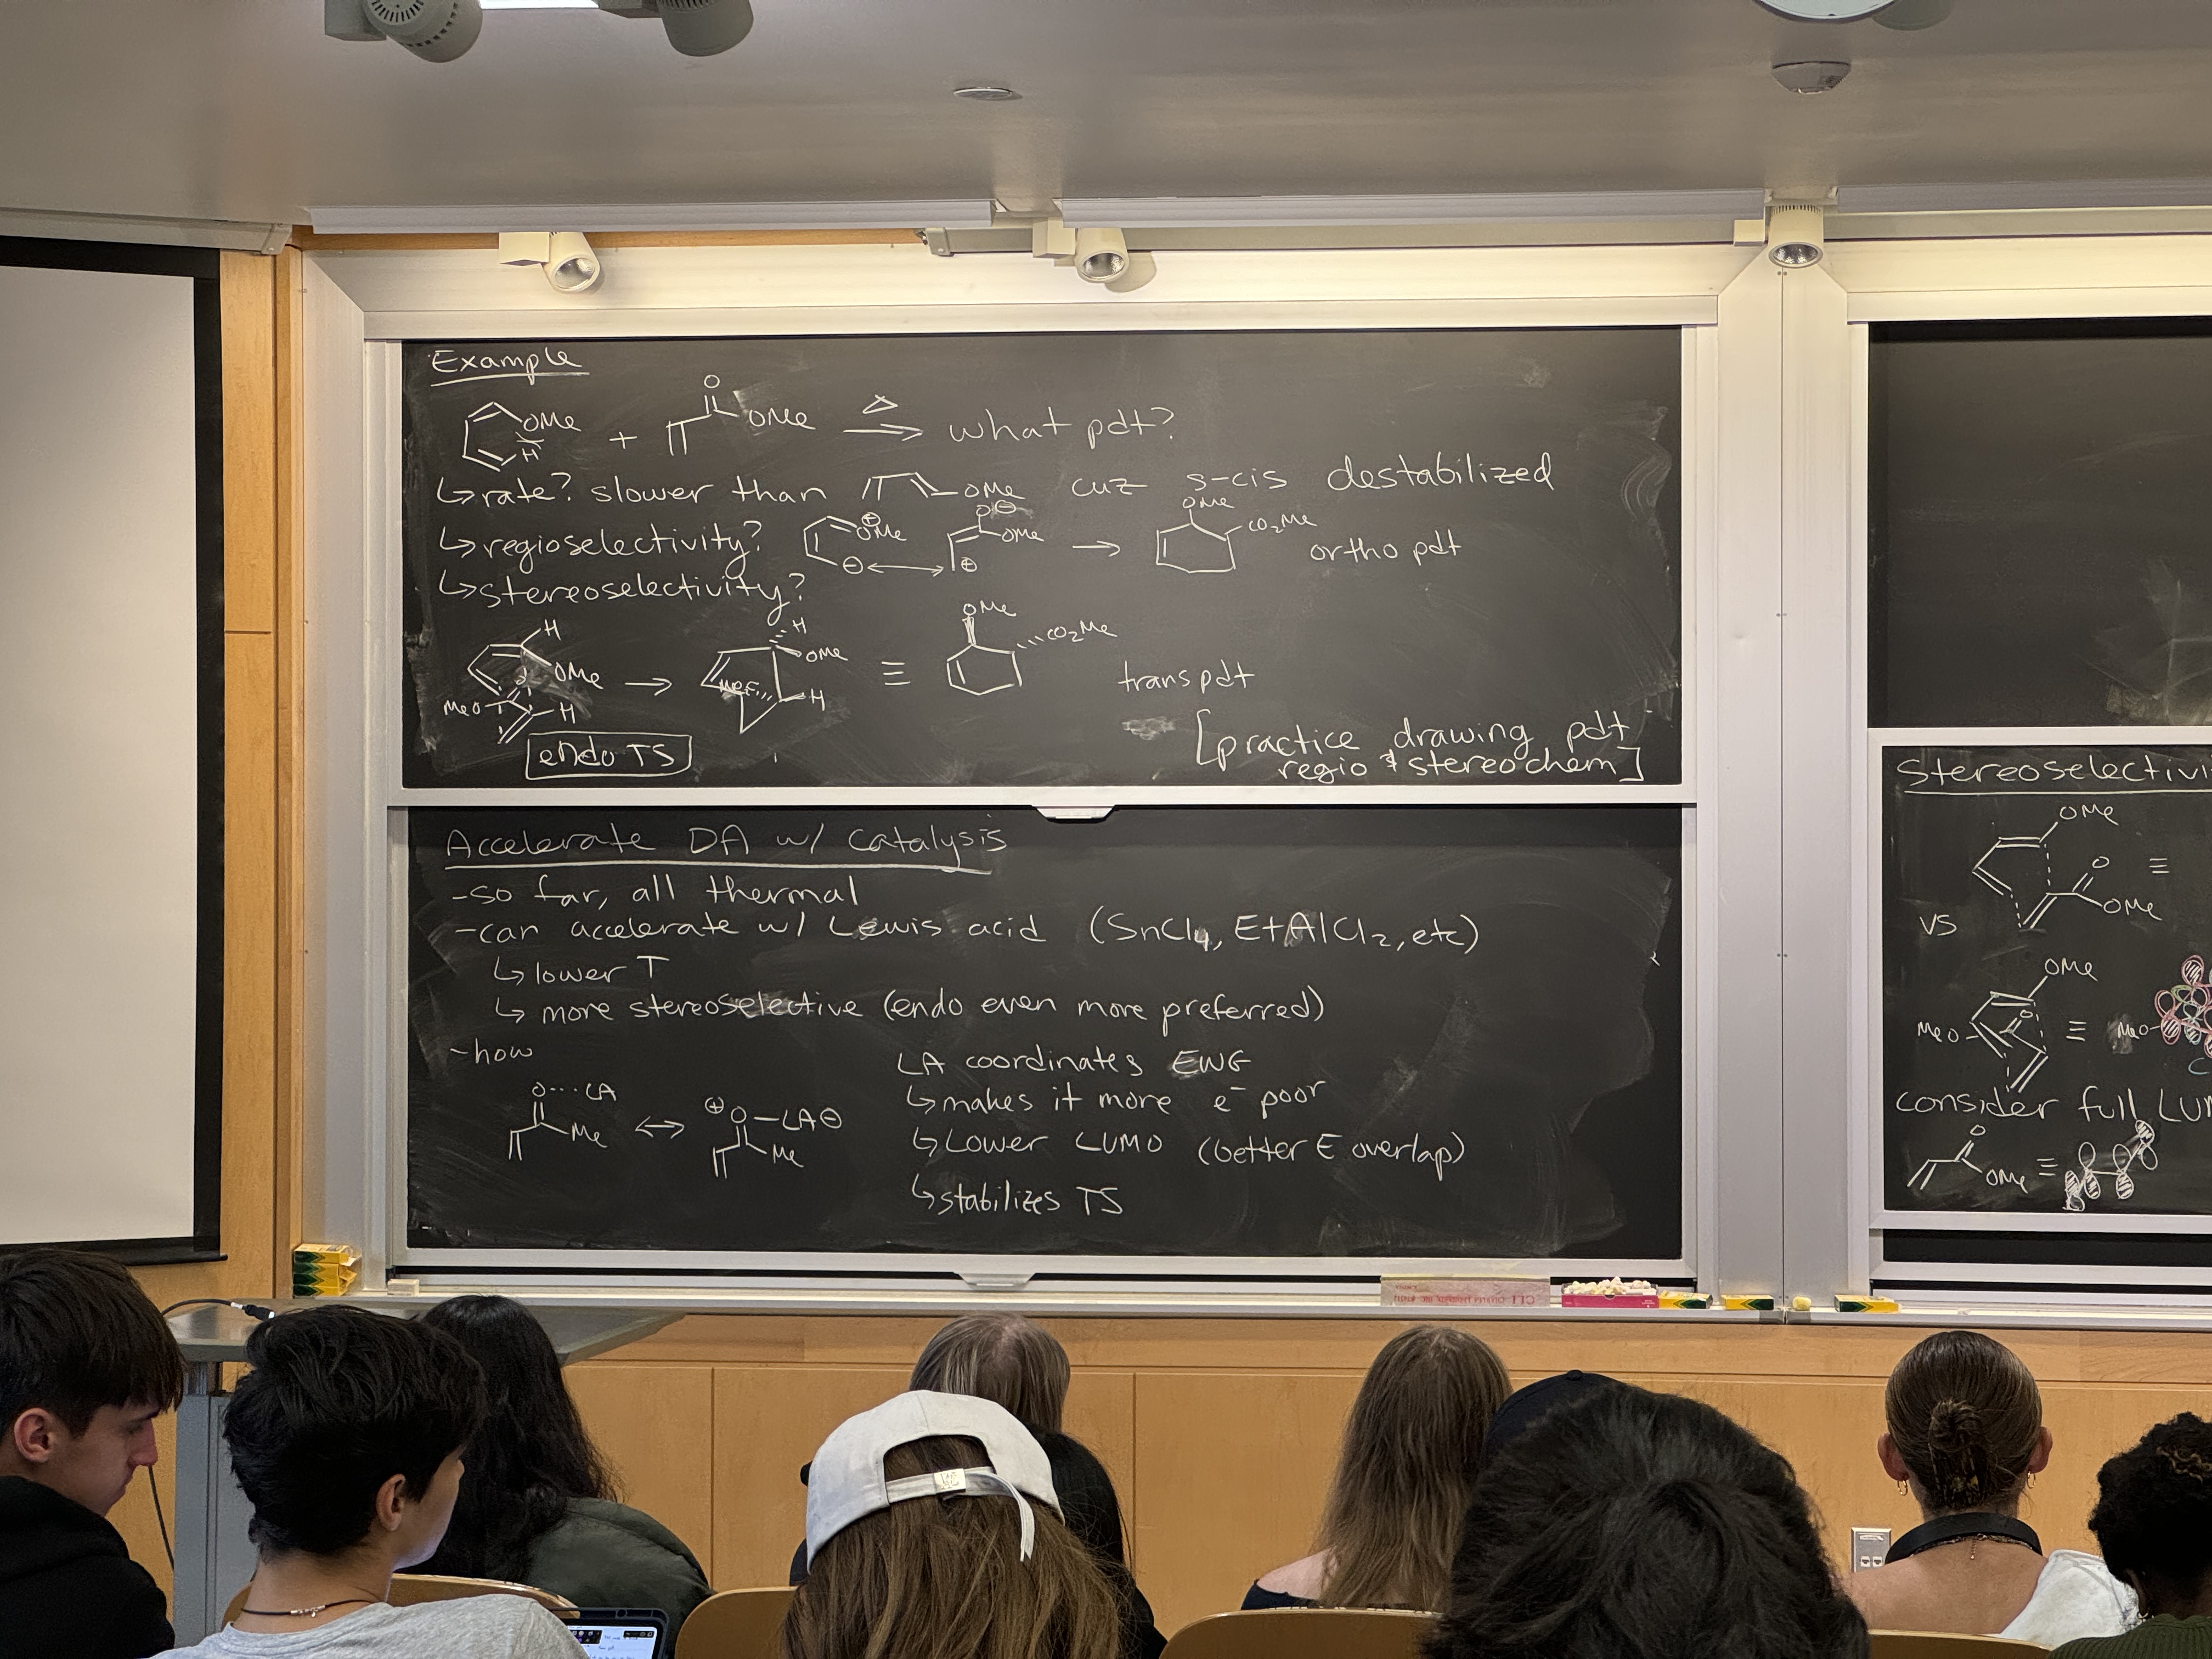 Example
OMe
H
+
O
OMe
△
what pdt?
↳ rate? slower than
OMe
cuz s-cis destabilized
↳ regioselectivity?
⊕
OMe
⊖
O⊖
OMe
⊕
OMe
CO₂Me
ortho pdt
↳ stereoselectivity?
H
OMe
MeO
H
H
OMe
H
≡
OMe
CO₂Me
trans pdt
endo TS
[practice drawing pdt
regio & stereochem]
Accelerate DA w/ Catalysis
- so far, all thermal
- can accelerate w/ Lewis acid (SnCl₄, EtAlCl₂, etc)
↳ lower T
↳ more stereoselective (endo even more preferred)
- how
O····LA
Me
⊕
O—LA⊖
Me
LA coordinates EWG
↳ makes it more e⁻ poor
↳ Lower LUMO (better E overlap)
↳ stabilizes TS
Stereoselectivi
OMe
O
OMe
≡
VS
OMe
MeO
O
≡
MeO
consider full LU
O
OMe
≡